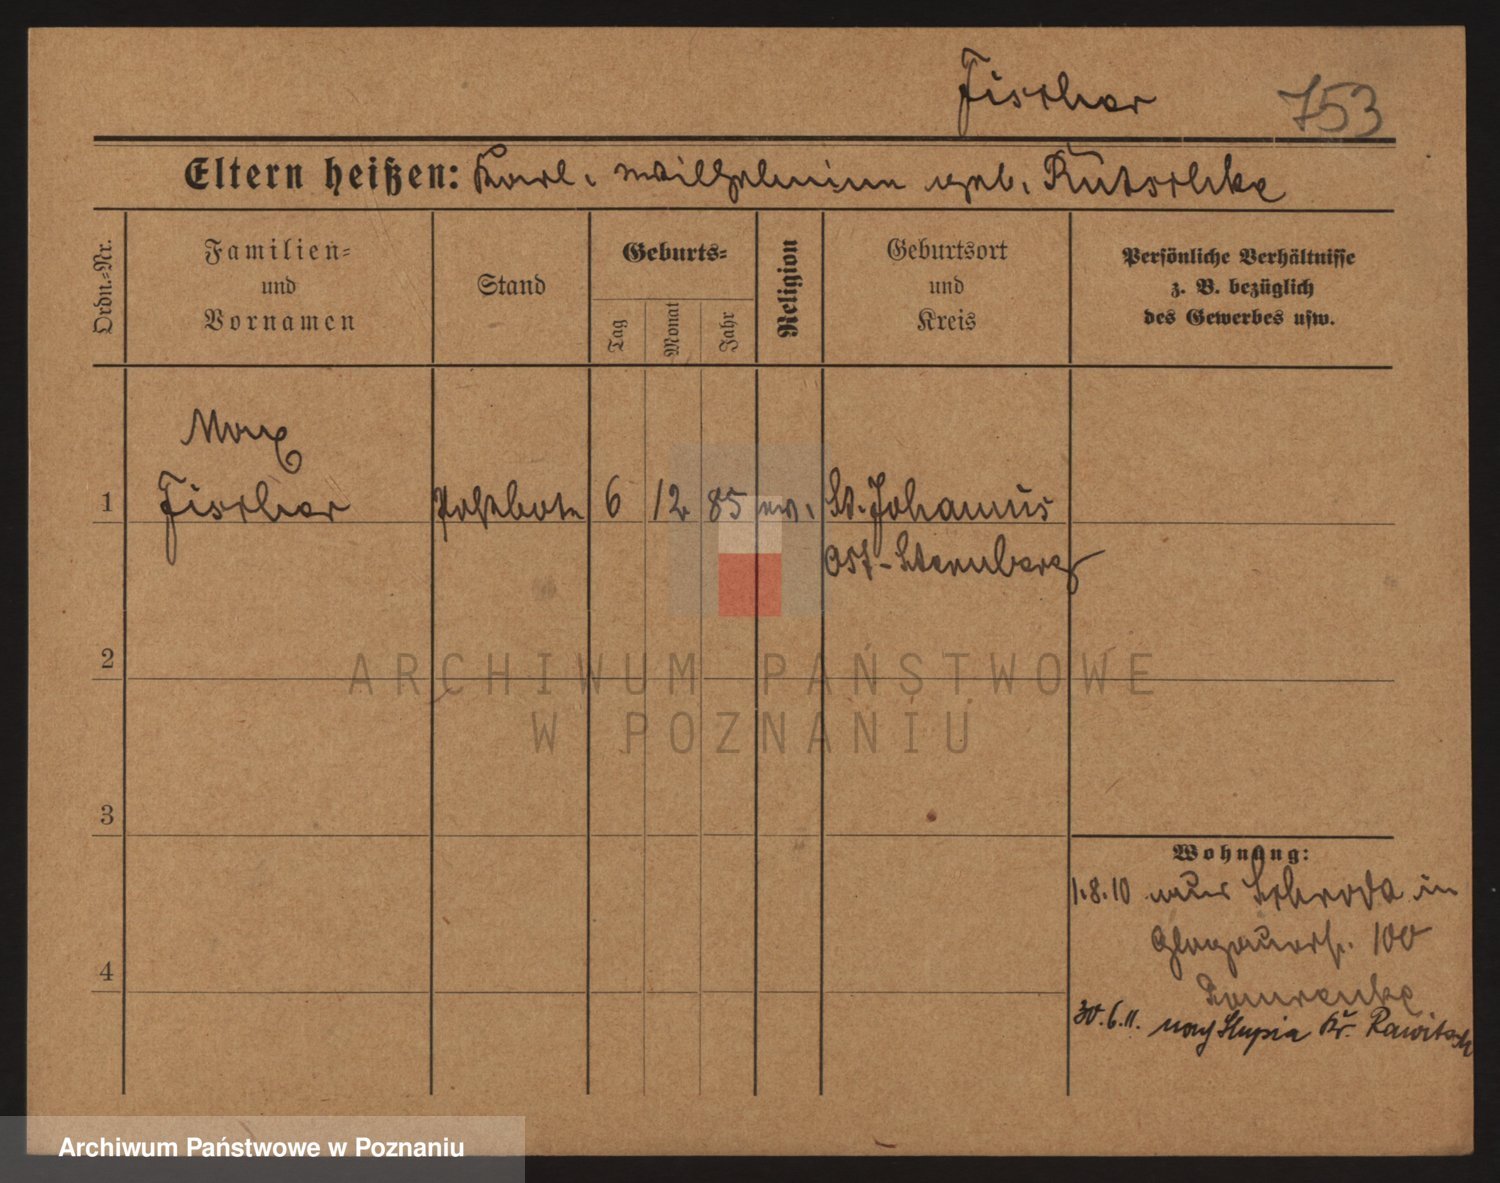 Fischer 753
Eltern heißen: Karl. Wilhelmine geb. Rutschke
Ordn.=Nr.
Familien=
und
Vornamen
Stand
Geburts=
Tag
Monat
Jahr
Religion
Geburtsort
und
Kreis
Persönliche Verhältnisse
z. B. bezüglich
des Gewerbes usw.
Max
1 Fischer Postbote 6 12 85 ev. St. Johannis
Ost-Sternberg
2
ARCHIWUM PAŃSTWOWE
W POZNANIU
3
Wohnung:
1.8.10 aus Schroda in
Glogauerstr. 100
4
30.6.11. nach Slupia Kr. Rawitsch
Archiwum Państwowe w Poznaniu